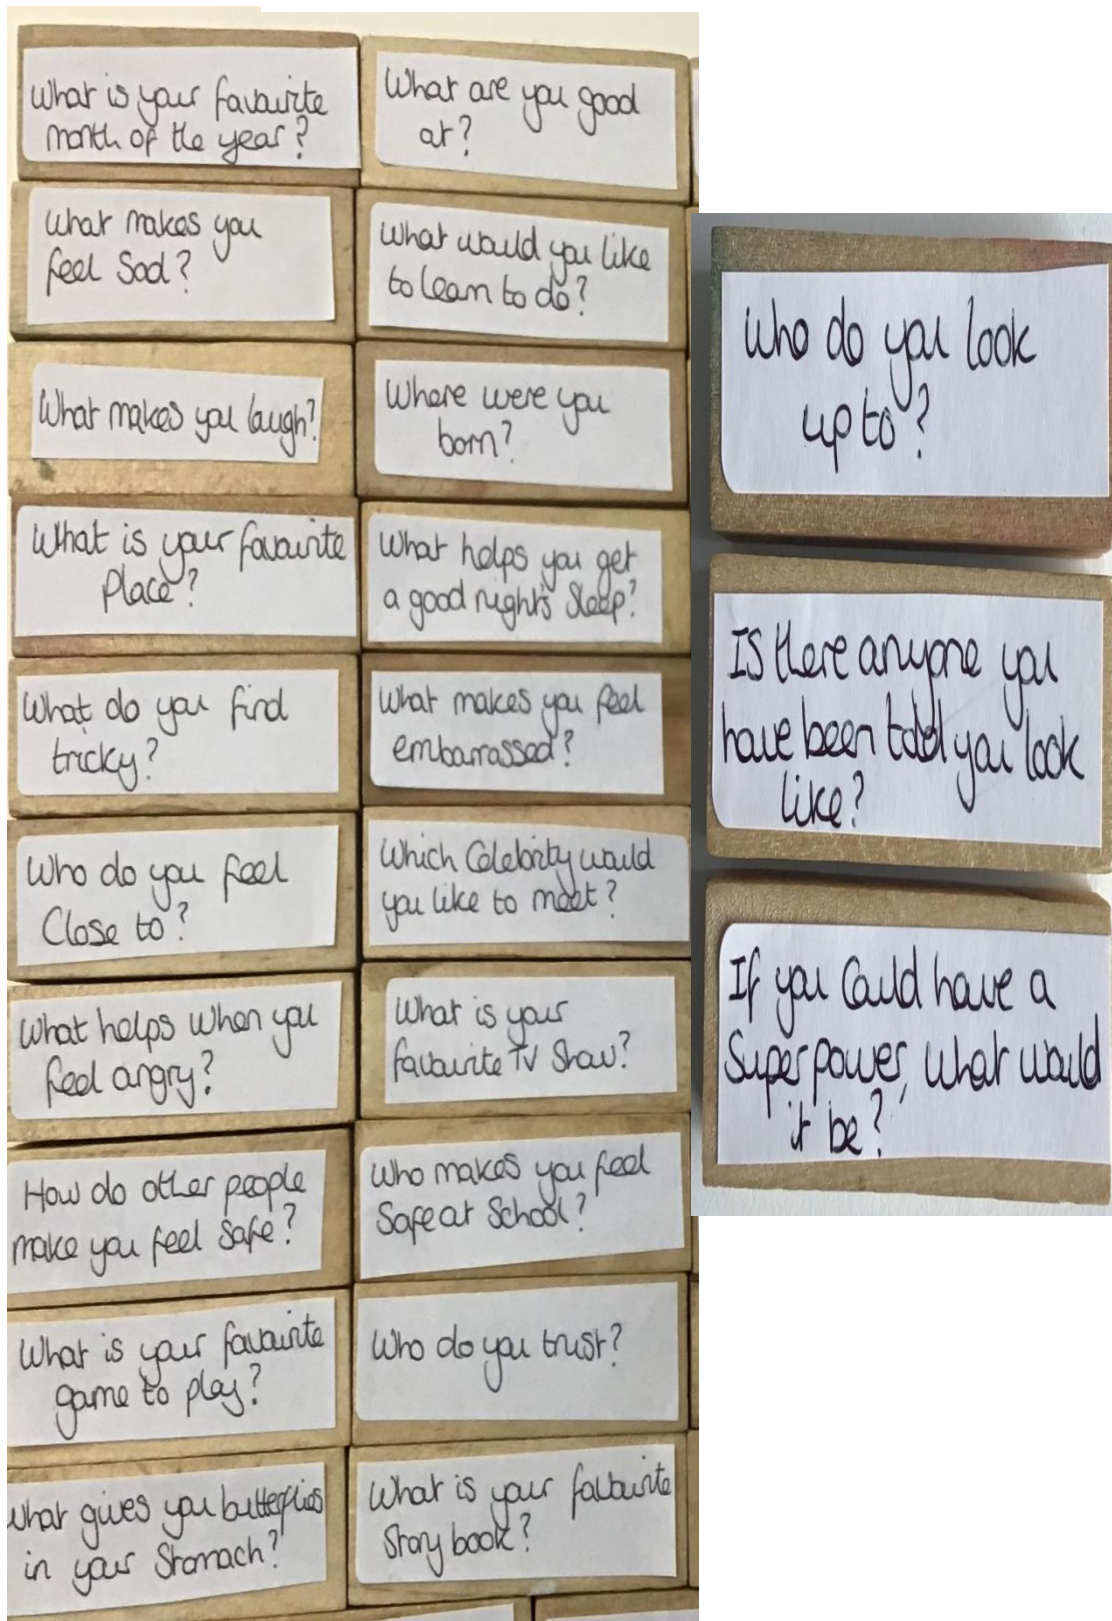 What is your favourite
month of the year?
What makes you
feel Sad?
What makes you laugh?
What is your favourite
Place?
What do you find
tricky?
Who do you feel
Close to?
What helps when you
feel angry?
How do other people
make you feel Safe?
What is your favourite
game to play?
What gives you butterflies
in your Stomach?
What are you good
at?
What would you like
to learn to do?
Where were you
born?
What helps you get
a good night's Sleep?
What makes you feel
embarrassed?
Which Celebrity would
you like to meet?
What is your
favourite TV Show?
Who makes you feel
Safe at School?
Who do you trust?
What is your favourite
Story book?
Who do you look
up to?
IS there anyone you
have been told you look
like?
If you Could have a
Super power, what would
it be?